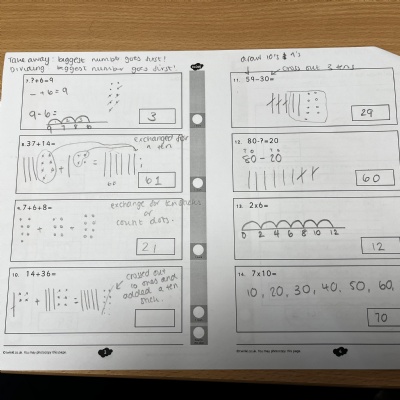 Take away: biggest number goes first!
Dividing biggest number goes first!
7. ?+6=9
- +6=9
9-6=
9 8 7 6
3
8. 37+14=
exchanged for
a ten
60
61
9. 7+6+8=
exchange for
or
count dots.
21
10. 14+36=
crossed out
10 ones and
added a ten
stick.
visit twinkl.co.uk
2
draw 10's & 1's
cross out 3 tens
11. 59-30=
29
12. 80-?=20
TO TO
80-20
60
13. 2x6=
0 2 4 6 8 10 12
12
14. 7x10=
10, 20, 30, 40, 50, 60,
70